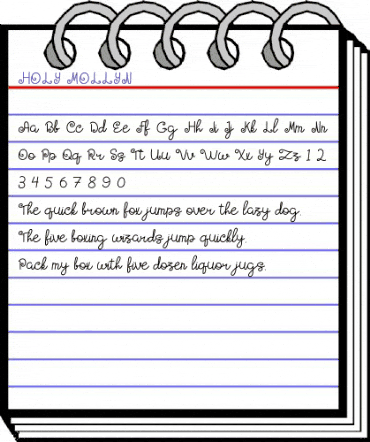 HOLY MOLLYN
Aa Bb Cc Dd Ee Ff Gg Hh Ii Jj Kk Ll Mm Nn
Oo Pp Qq Rr Ss Tt Uu Vv Ww Xx Yy Zz 1 2
3 4 5 6 7 8 9 0
The quick brown fox jumps over the lazy dog.
The five boxing wizards jump quickly.
Pack my box with five dozen liquor jugs.